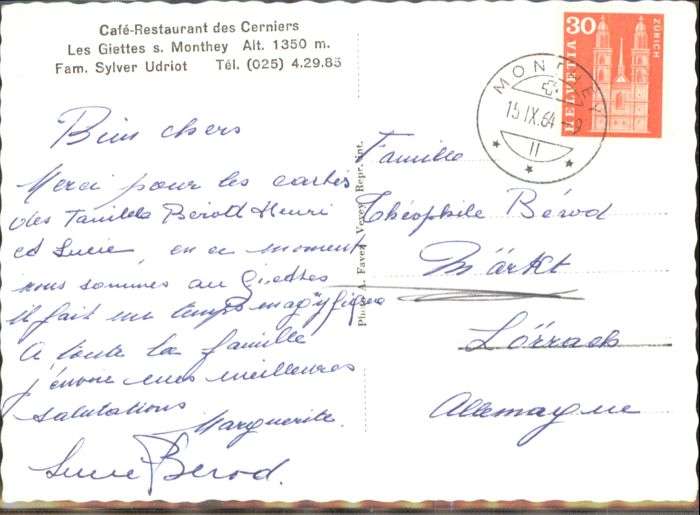 Café-Restaurant des Cerniers
Les Giettes s. Monthey Alt. 1350 m.
Fam. Sylver Udriot Tél. (025) 4.29.85
30
HELVETIA
ZÜRICH
MONTHEY
15.IX.64-9
II
Bien chers
Merci pour les cartes
des familles Bérod Henri
et Lucie, en ce moment
nous sommes au Giettes
il fait un temps magnifique
A toute la famille
j'envoie mes meilleures
salutations
Marguerite.
Lucie Bérod.
Photo A. Favez, Vevey. Repr. int.
Famille
Théophile Bérod
Märkt
Lörrach
Allemagne